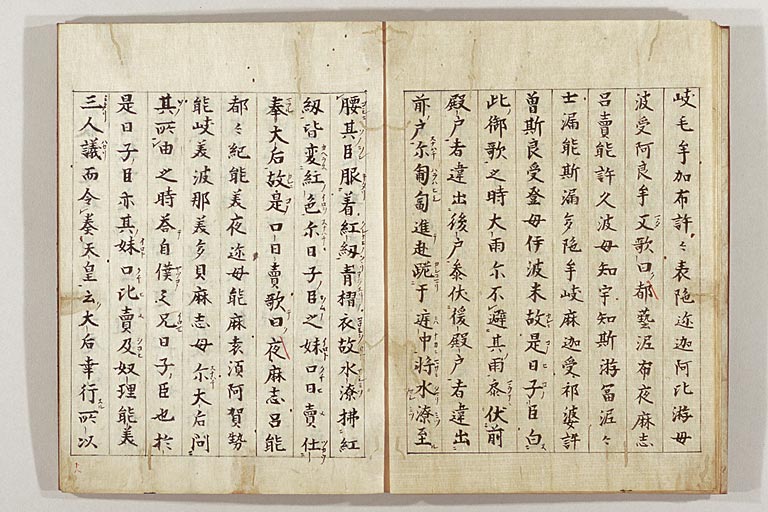 岐毛牟加布許々表陁迩迦阿比游毋
波受阿良牟又歌曰都藝泥布夜麻志
呂賣能許久波毋知宇知斯游冨泥々
士漏能斯漏多陁牟岐麻迦受祁婆許
曽斯良受登毋伊波米故是日子臣白
此御歌之時大雨尓不避其雨叅伏前
殿户者違出後户叅伏後殿户者違出
前户尓匍匐進赴跪于庭中時水潦至
腰其臣服着紅紐青摺衣故水潦拂紅
紐皆変紅色尓日子臣之妹口日賣仕
奉大后故是口日賣歌曰夜麻志呂能
都々紀能美夜迩毋能麻袁須阿賀勢
能岐美波那美多具麻志毋尓大后問
其所由之時荅自僕之兄日子臣也於
是日子臣亦其妹口比賣及奴理能美
三人議而令奏天皇云大后幸行所以